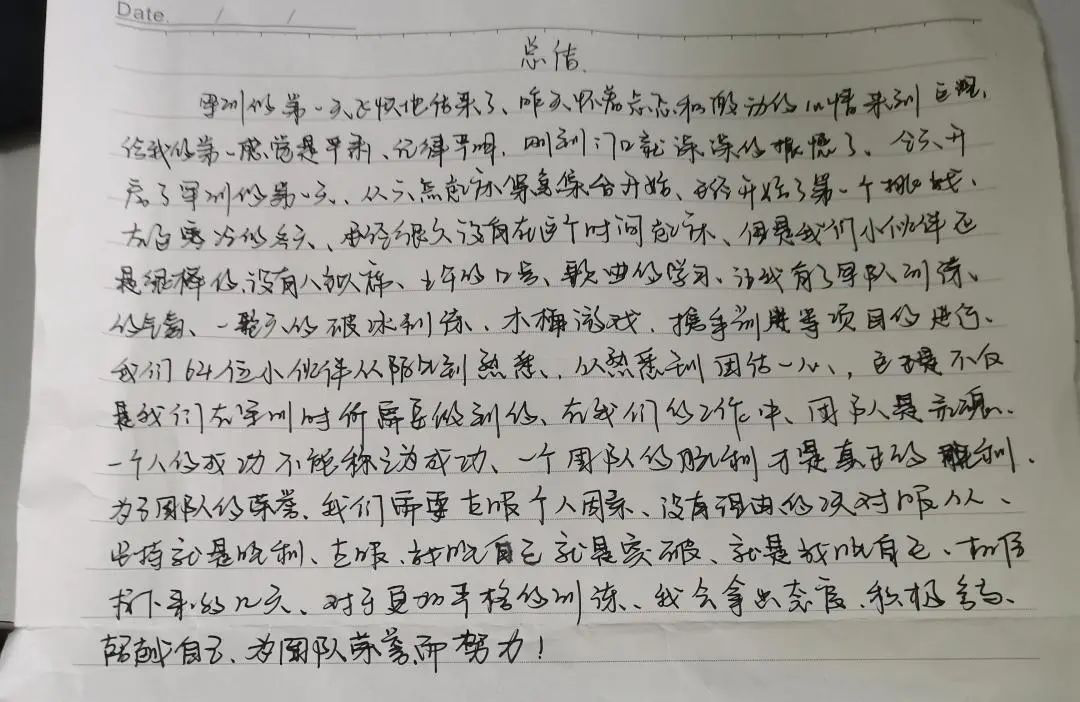 Date. / /
总结.
军训的第一天飞快地结束了、昨天怀着忐忑和激动的心情来到这里,
给我的第一感觉是严肃、纪律严明,刚到门口就深深的振憾了、今天开
启了军训的第一天、从六点起床紧急集合开始、已经开始了第一个挑战、
在这寒冷的冬天、已经很久没有在这个时间起床、但是我们小伙伴还
是坚持的,没有人缺席、上午的口号、歌曲的学习、让我有了军队训练、
的气氛、一整天的破冰训练、木桶游戏,携手前进等项目的进行、
我们64位小伙伴从陌生到熟悉、从熟悉到团结一心、,这不仅
是我们在军训时所需要做到的、在我们的工作中、团队人是灵魂、
一个人的成功不能称之为成功、一个团队的胜利才是真正的胜利.
为了团队的荣誉,我们需要克服个人因素、没有理由的绝对服从、
坚持就是胜利、克服、战胜自己就是突破、就是战胜自己、相信
接下来的几天、对于更加严格的训练、我会拿出态度、积极参与、
超越自己、为团队荣誉而努力!